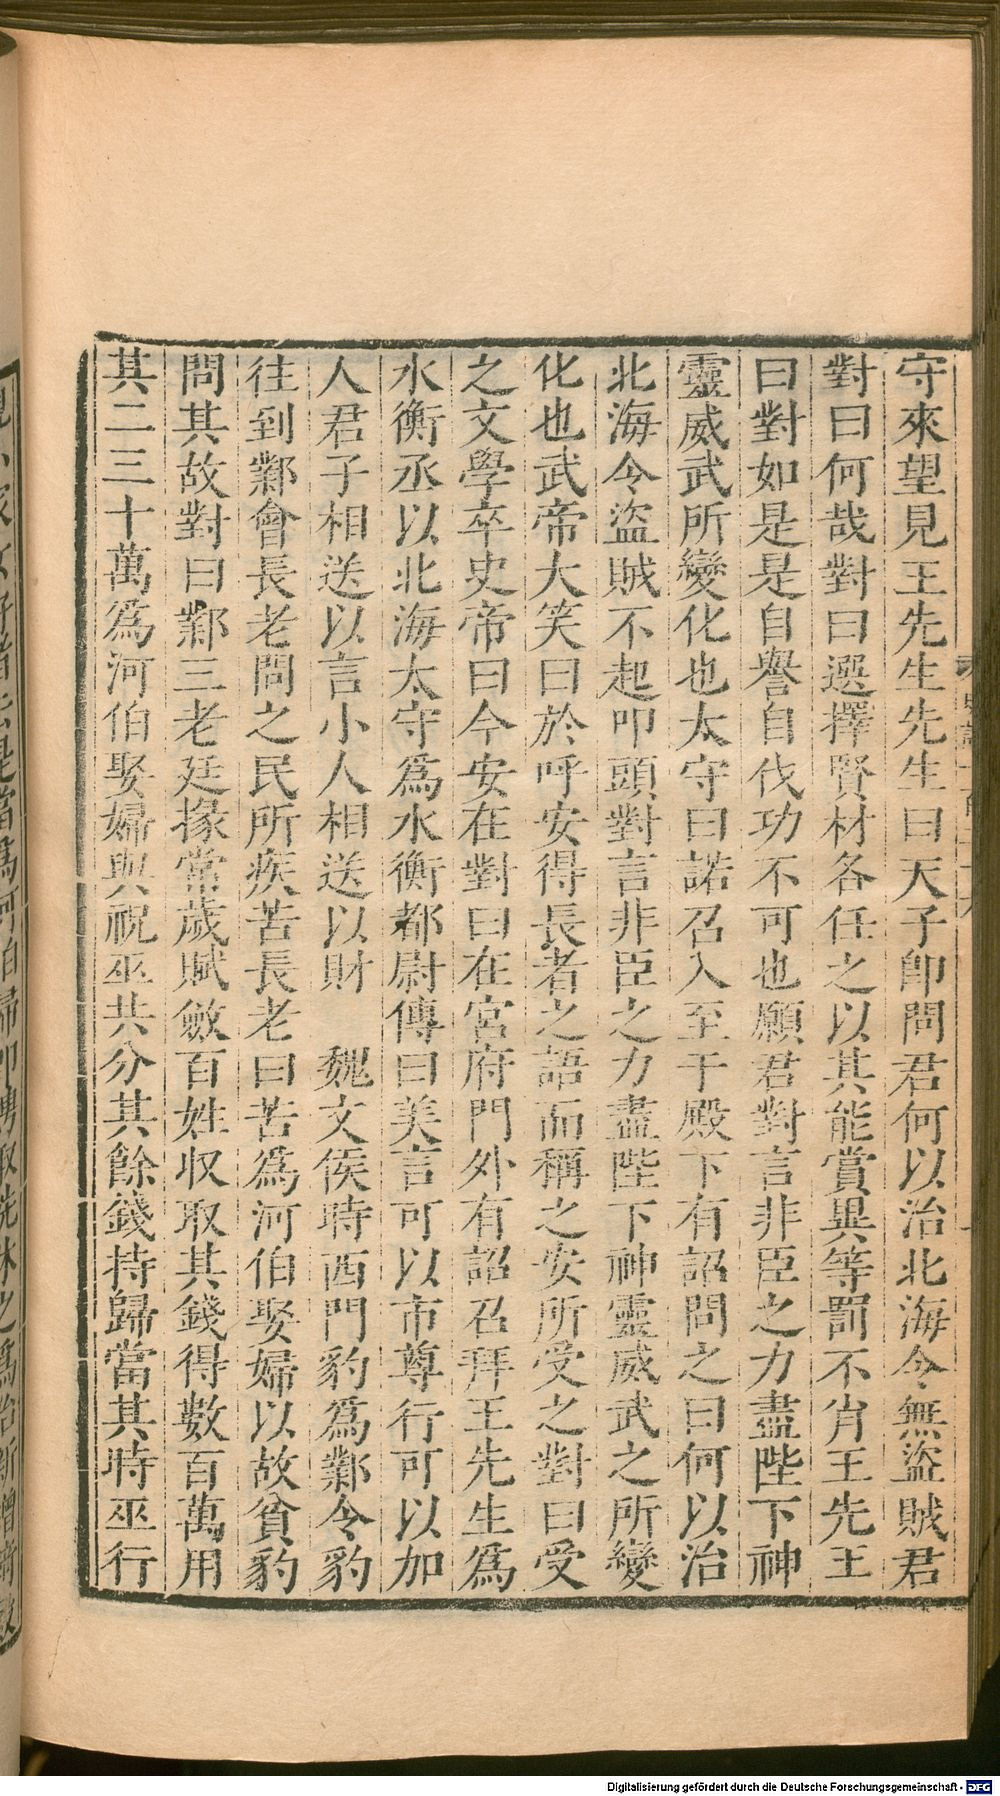 守來望見王先生先生曰天子卽問君何以治北海令無盜賊君
對曰何哉對曰選擇賢材各任之以其能賞異等罰不肖王先王
曰對如是是自譽自伐功不可也願君對言非臣之力盡陛下神
靈威武所變化也太守曰諾召入至于殿下有詔問之曰何以治
北海令盜賊不起叩頭對言非臣之力盡陛下神靈威武之所變
化也武帝大笑曰於呼安得長者之語而稱之安所受之對曰受
之文學卒史帝曰今安在對曰在宮府門外有詔召拜王先生爲
水衡丞以北海太守爲水衡都尉傳曰美言可以市尊行可以加
人君子相送以言小人相送以財　魏文侯時西門豹爲鄴令豹
往到鄴會長老問之民所疾苦長老曰苦爲河伯娶婦以故貧豹
問其故對曰鄴三老廷掾常歲賦斂百姓収取其錢得數百萬用
其二三十萬爲河伯娶婦與祝巫共分其餘錢持歸當其時巫行
Digitalisierung gefördert durch die Deutsche Forschungsgemeinschaft - DFG